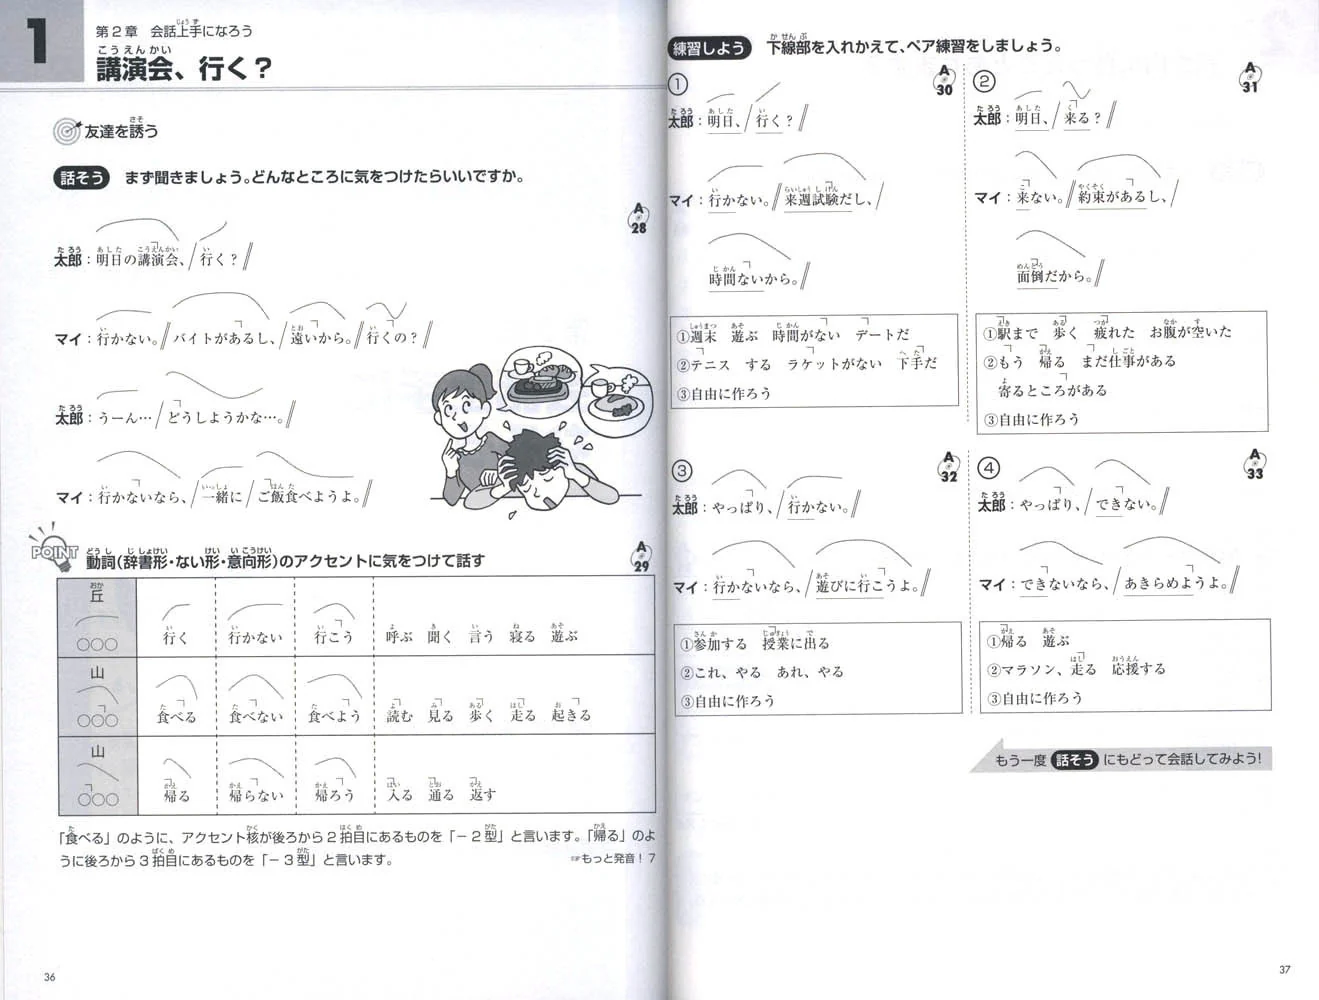 1
第2章 会話上手になろう
講演会、行く？
友達を誘う
話そう まず聞きましょう。どんなところに気をつけたらいいですか。
A
28
太郎：明日の講演会、/行く？//
マイ：行かない。//バイトがあるし、/遠いから。//行くの？//
太郎：うーん…/どうしようかな…。//
マイ：行かないなら、/一緒に/ご飯食べようよ。//
POINT 動詞(辞書形・ない形・意向形)のアクセントに気をつけて話す
A
29
丘 ○○○ 行く 行かない 行こう 呼ぶ 聞く 言う 寝る 遊ぶ
山 ○○○ 食べる 食べない 食べよう 読む 見る 歩く 走る 起きる
山 ○○○ 帰る 帰らない 帰ろう 入る 通る 返す
「食べる」のように、アクセント核が後ろから2拍目にあるものを「－2型」と言います。「帰る」のよ
うに後ろから3拍目にあるものを「－3型」と言います。 ☞もっと発音！7
36
練習しよう 下線部を入れかえて、ペア練習をしましょう。
① A
30
太郎：明日、/行く？//
マイ：行かない。//来週試験だし、/
時間ないから。//
①週末 遊ぶ 時間がない デートだ
②テニス する ラケットがない 下手だ
③自由に作ろう
② A
31
太郎：明日、/来る？//
マイ：来ない。//約束があるし、/
面倒だから。//
①駅まで 歩く 疲れた お腹が空いた
②もう 帰る まだ仕事がある
寄るところがある
③自由に作ろう
③ A
32
太郎：やっぱり、/行かない。//
マイ：行かないなら、/遊びに行こうよ。//
①参加する 授業に出る
②これ、やる あれ、やる
③自由に作ろう
④ A
33
太郎：やっぱり、/できない。//
マイ：できないなら、/あきらめようよ。//
①帰る 遊ぶ
②マラソン、走る 応援する
③自由に作ろう
もう一度 話そう にもどって会話してみよう！
37